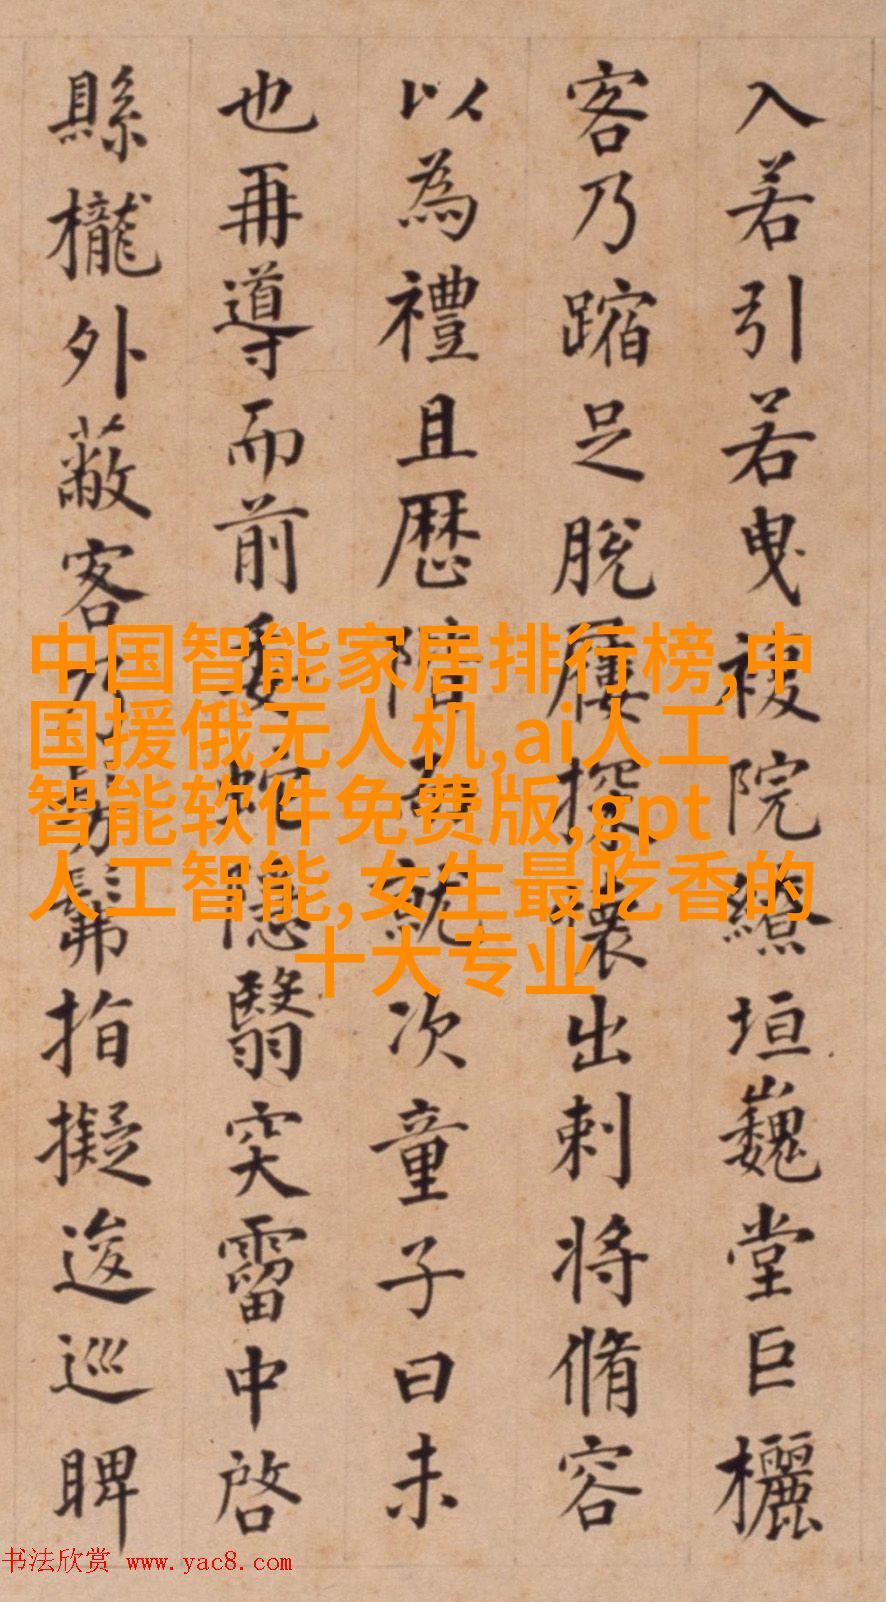 入若引若曳複院繚垣巍堂巨欐
客乃蹜足脫屨探懷出刺將脩容
以為禮且歷階就次童子曰未
也再導而前委蛇隱翳突霤中啓
縣櫳外蔽客乃髣髴指擬逡巡睥
中国智能家居排行榜,中
国援俄无人机,ai人工
智能软件免费版,gpt
人工智能,女生最吃香的
十大专业
书法欣赏 www.yac8.com